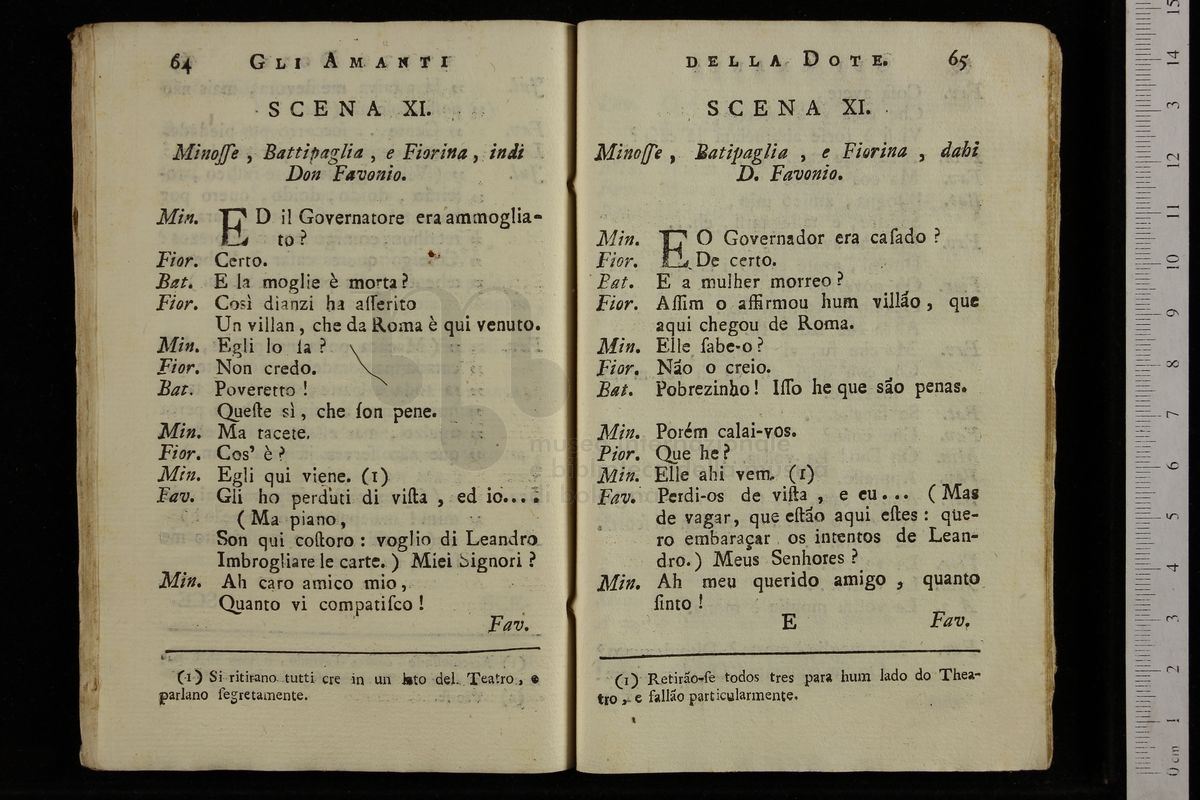 64 GLI AMANTI
SCENA XI.
Minoſſe , Battipaglia , e Fiorina , indi
Don Favonio.
Min. ED il Governatore era ammoglia-
to ?
Fior. Certo.
Bat. E la moglie è morta ?
Fior. Così dianzi ha aſſerito
Un villan , che da Roma è qui venuto.
Min. Egli lo ſa ?
Fior. Non credo.
Bat. Poveretto !
Queſte sì , che ſon pene.
Min. Ma tacete.
Fior. Cos' è ?
Min. Egli qui viene. (1)
Fav. Gli ho perduti di viſta , ed io....
( Ma piano ,
Son qui coſtoro : voglio di Leandro
Imbrogliare le carte. ) Miei Signori ?
Min. Ah caro amico mio ,
Quanto vi compatiſco !
Fav.
(1) Si ritirano tutti tre in un lato del Teatro , e
parlano ſegretamente.
DELLA DOTE. 65
SCENA XI.
Minoſſe , Batipaglia , e Fiorina , dahi
D. Favonio.
Min. EO Governador era caſado ?
Fior. De certo.
Bat. E a mulher morreo ?
Fior. Aſſim o affirmou hum villão , que
aqui chegou de Roma.
Min. Elle ſabe-o ?
Fior. Não o creio.
Bat. Pobrezinho ! Iſſo he que são penas.
Min. Porém calai-vos.
Pior. Que he ?
Min. Elle ahi vem. (1)
Fav. Perdi-os de viſta , e eu... ( Mas
de vagar, que eſtão aqui eſtes : que-
ro embaraçar os intentos de Lean-
dro. ) Meus Senhores ?
Min. Ah meu querido amigo , quanto
ſinto !
E Fav.
(1) Retirão-ſe todos tres para hum lado do Thea-
tro , e fallão particularmente.
museo internazionale
e biblioteca della musica
di bologna
0 cm 1 2 3 4 5 6 7 8 9 10 11 12 13 14 15